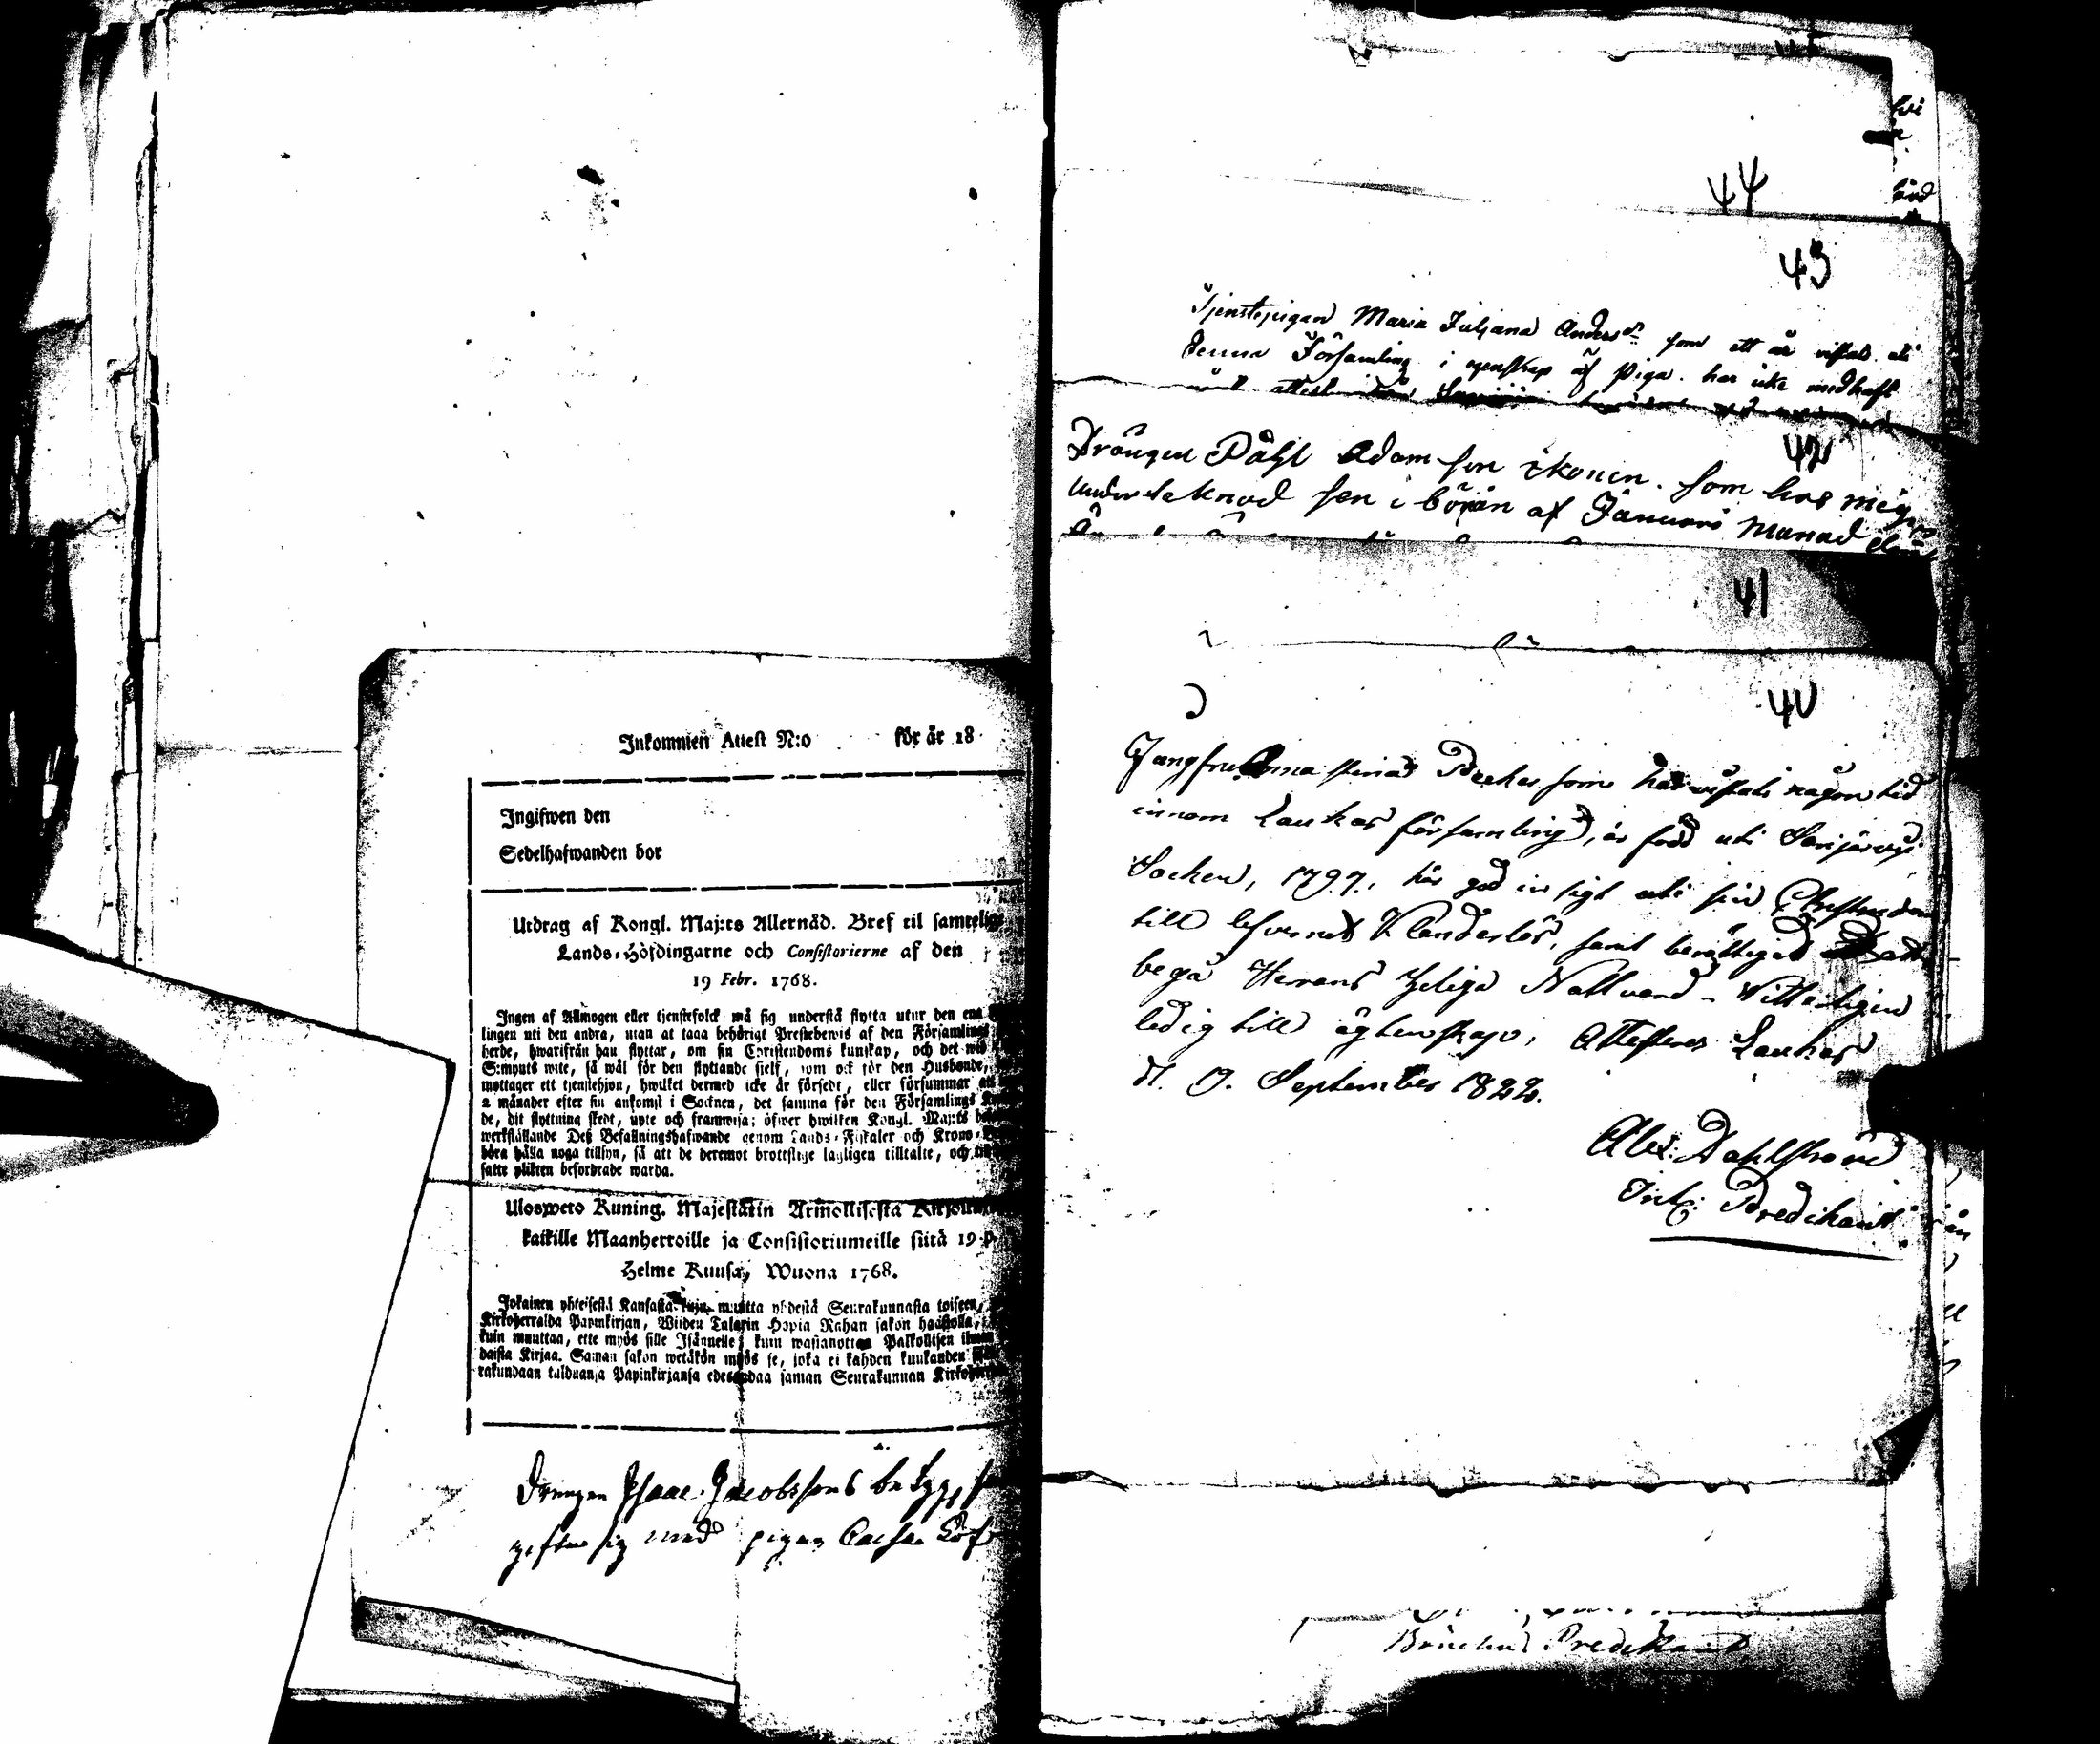 Inkomnien Attest N:o för år 18
Ingifwen den
Sedelhafwanden bor
Utdrag af Kongl. Maj:ts Allernåd. Bref til samtelig
Lands-Höfdingarne och Consistorierne af den
19 Febr. 1768.
Ingen af Allmogen eller tjenstefolck må sig understå flytta utur den ena
lingen uti den andra, utan at taga behörigt Prestebewis af den Församlings
herde, hwarifrån han flyttar, om sin Christendoms kunskap, och det wid
S:mynts wite, så wäl för den flyttande sjelf, som ock för den Husbonde,
mottager ett tjenstehjon, hwilket dermed icke är försedt, eller försummar att
2 månader efter sin ankomst i Socknen, det samma för den Församlings
de, dit flyttning skedt, upte och framwisa; öfwer hwilken Kongl. Maj:ts
werkställande Deß Befallningshafwande genom Lands-Fiskaler och Krono-
böra hålla noga tillsyn, så att de deremot brottslige lagligen tilltalte, och
satte plikten befordrade warda.
Ulosweto Kuning. Majestätin Armollisesta Kirjoitu
kaikille Maanherroille ja Consistoriumeille siitä 19 p.
Helme Kuusa, Wuona 1768.
Jokainen yhteisestä Kansasta kuin muutta yhdestä Seurakunnasta toiseen,
Kirkoherralda Papinkirjan, Wiiden Talarin Hopia Rahan sakon haastolla,
kuin muuttaa, ette myös sille Isännelle, kuin wastanottaa Palkollisen ilman
daista Kirjaa. Saman sakon wetäkön myös se, joka ei kahden kuukauden
rakundaan tulduansa Papinkirjansa edesandaa saman Seurakunnan Kirkoherr
Drengen Isaac Jacobssons betyg,
gifter sig med pigan Caisa Löf
44
43
Tjenstepigan Maria Juljana Andersdr som ett år vistats uti
denna Församling i egenskap af Piga. har icke medhaft
attest
42
Drängen Påhl Adamsson Ikonen. som hos mig
undertecknad sen i början af Januari Månad
41
40
Jungfru Anna Stina Becker som har vistats någon tid
innom Laukas församling, är född uti Sarijärvi
Socken, 1797, här god insigt uti sin Christendom
till lefvernet Klanderlös, samt berättigad att
begå Herrans Heliga Nattvard - Vitterligen
ledig till ägtenskap, Attesteras Laukas
d. 7. September 1822.
Alex: Dahlström
Predikant
Predikant